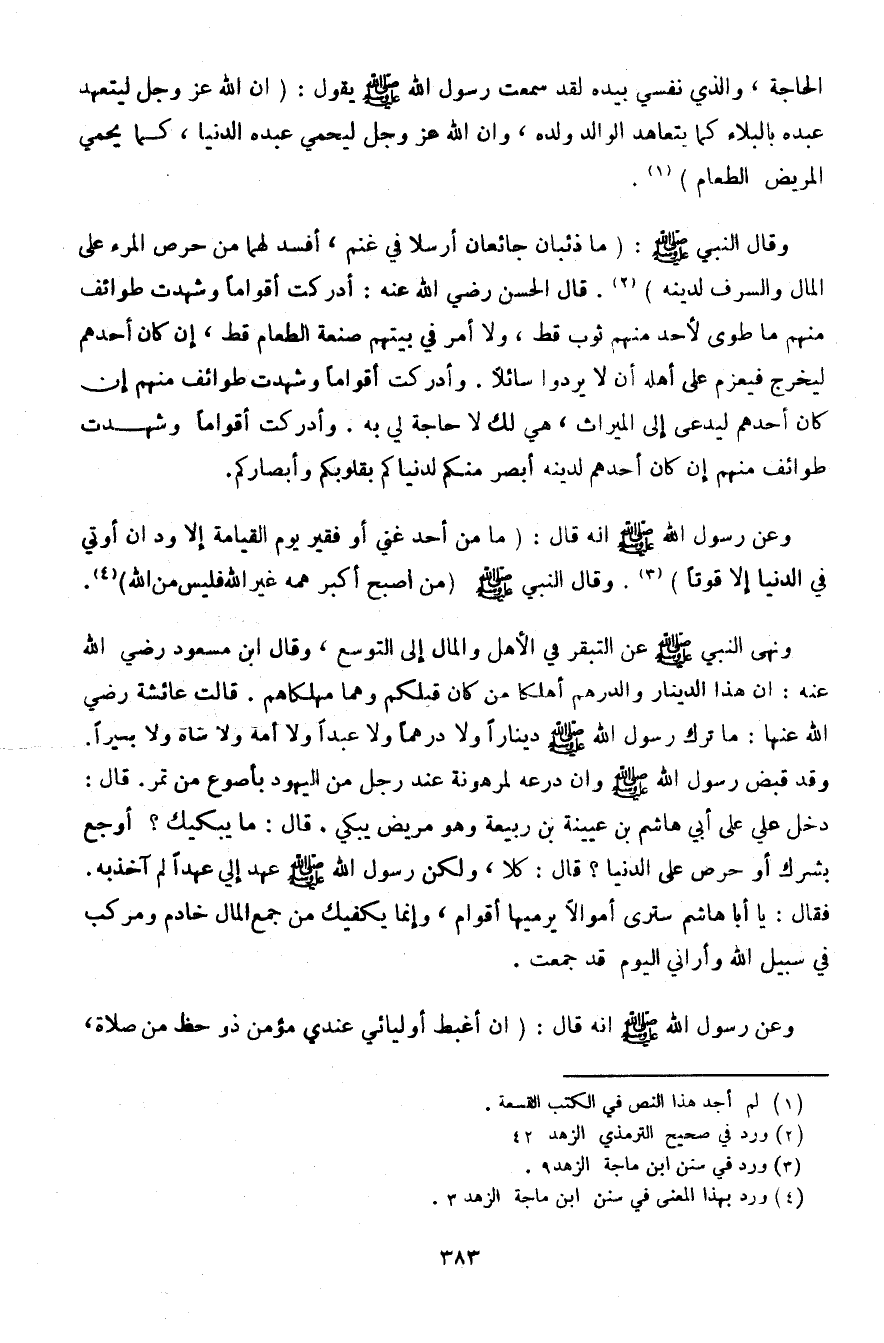 الحاجة ، والذي نفسي بيده لقد سمعت رسول الله ﷺ يقول : ( ان الله عز وجل ليتعهد
عبده بالبلاء كما يتعاهد الوالد ولده ، وان الله عز وجل ليحمي عبده الدنيا ، كـا يحمي
المريض الطعام ) (١) .
وقال النبي ﷺ : ( ما ذئبان جائعان أرسلا في غنم ، أفسد لهما من حرص المرء على
المال والسرف لدينه ) (٢) . قال الحسن رضي الله عنه : أدركت أقواماً وشهدت طوائف
منهم ما طوى لأحد منهم ثوب قط ، ولا أمر في بيتهم صنعة الطعام قط ، إن كان أحدهم
ليخرج فيعزم على أهله أن لا يردوا سائلاً . وأدركت أقواماً وشهدت طوائف منهم إن
كان أحدهم ليدعى إلى الميراث ، هي لك لا حاجة لي به . وأدركت أقواماً وشهدت
طوائف منهم إن كان أحدهم لدينه أبصر منكم لدنياكم بقلوبكم وأبصاركم.
وعن رسول الله ﷺ انه قال : ( ما من أحد غني أو فقير يوم القيامة إلا ود ان أوتي
في الدنيا إلا قوتاً ) (٣) . وقال النبي ﷺ (من اصبح أكبر همه غير الله فليس من الله)(٤).
ونهى النبي ﷺ عن التبقر في الأهل والمال إلى التوسع ، وقال ابن مسعود رضي الله
عنه : ان هذا الدينار والدرهم أهلكا من كان قبلكم وهما مهلكاهم . قالت عائشة رضي
الله عنها : ما ترك رسول الله ﷺ ديناراً ولا درهماً ولا عبداً ولا أمة ولا شاة ولا بسيراً.
وقد قبض رسول الله ﷺ وان درعه لمرهونة عند رجل من اليهود بأصوع من تمر. قال :
دخل علي على أبي هاشم بن عيينة بن ربيعة وهو مريض يبكي . قال : ما يبكيك ؟ أوجع
بشرك أو حرص على الدنيا ؟ قال : كلا ، ولكن رسول الله ﷺ عهد إلي عهداً لم آخذبه.
فقال : يا أبا هاشم سترى أموالاً يرميها أقوام ، وإنما يكفيك من جمع المال خادم ومركب
في سبيل الله وأراني اليوم قد جمعت .
وعن رسول الله ﷺ انه قال : ( ان أغبط أوليائي عندي مؤمن ذو حظ من صلاة،
(١) لم أجد هذا النص في الكتب القسعة .
(٢) ورد في صحيح الترمذي الزهد ٤٢
(٣) ورد في سنن ابن ماجة الزهد٩ .
(٤) ورد بهذا المعنى في سنن ابن ماجة الزهد ٣ .
٣٨٣